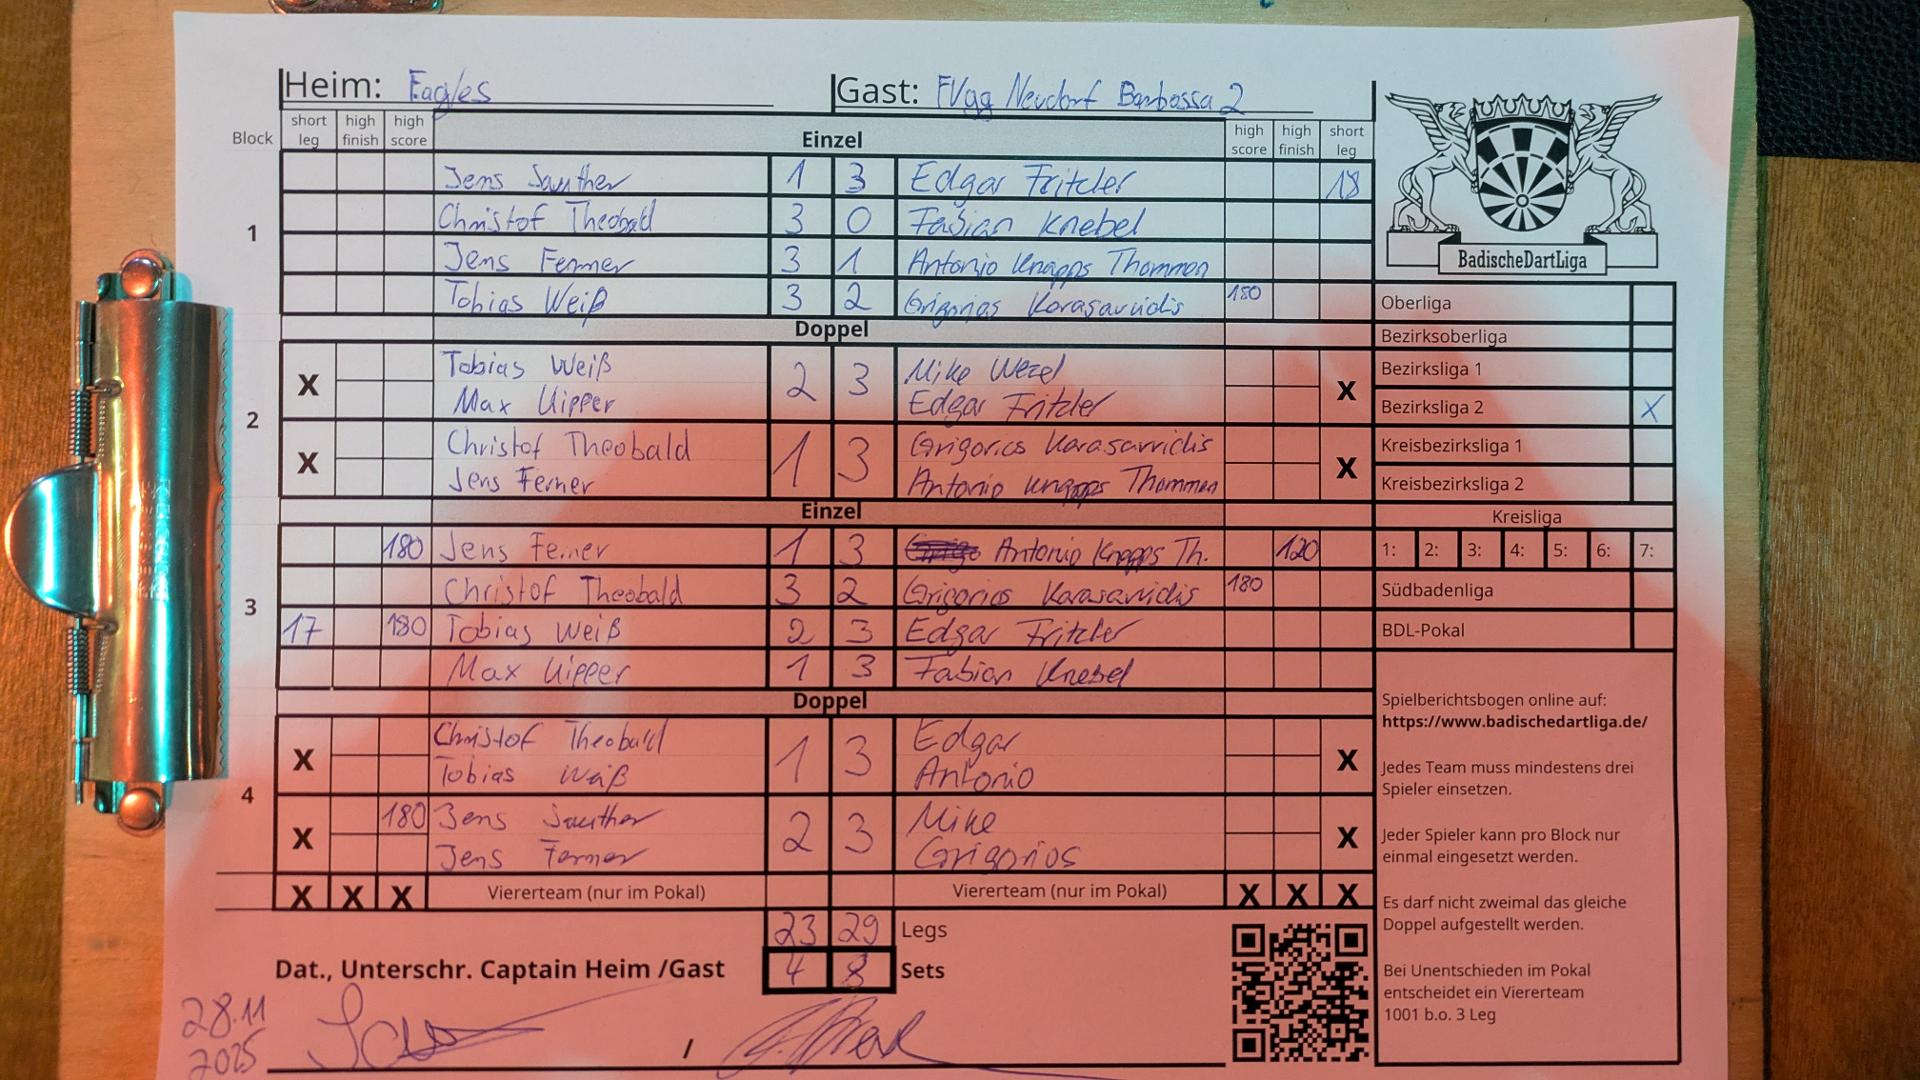 Heim: Eagles Gast: FVgg Neudorf Barbossa 2
Block short leg high finish high score Einzel high score high finish short leg
1
Jens Sauther 1 3 Edgar Fritzler 18
Christof Theobald 3 0 Fabian Knebel
Jens Fermer 3 1 Antonio Knapps Thommen
Tobias Weiß 3 2 Grigorios Karasavvidis 180
Doppel
2
X Tobias Weiß 2 3 Mike Wezel X
Max Kipper Edgar Fritzler
X Christof Theobald 1 3 Grigorios Karasavvidis X
Jens Ferner Antonio Knapps Thommen
Einzel
3
180 Jens Ferner 1 3 Antonio Knapps Th. 120
Christof Theobald 3 2 Grigorios Karasavvidis 180
17 180 Tobias Weiß 2 3 Edgar Fritzler
Max Kipper 1 3 Fabian Knebel
Doppel
4
X Christof Theobald 1 3 Edgar X
Tobias Weiß Antonio
X 180 Jens Sauther 2 3 Mike X
Jens Fermer Grigorios
X X X Viererteam (nur im Pokal) Viererteam (nur im Pokal) X X X
23 29 Legs
Dat., Unterschr. Captain Heim /Gast 4 8 Sets
28.11
2025
/
BadischeDartLiga
Oberliga
Bezirksoberliga
Bezirksliga 1
Bezirksliga 2 X
Kreisbezirksliga 1
Kreisbezirksliga 2
Kreisliga
1: 2: 3: 4: 5: 6: 7:
Südbadenliga
BDL-Pokal
Spielberichtsbogen online auf:
https://www.badischedartliga.de/
Jedes Team muss mindestens drei
Spieler einsetzen.
Jeder Spieler kann pro Block nur
einmal eingesetzt werden.
Es darf nicht zweimal das gleiche
Doppel aufgestellt werden.
Bei Unentschieden im Pokal
entscheidet ein Viererteam
1001 b.o. 3 Leg